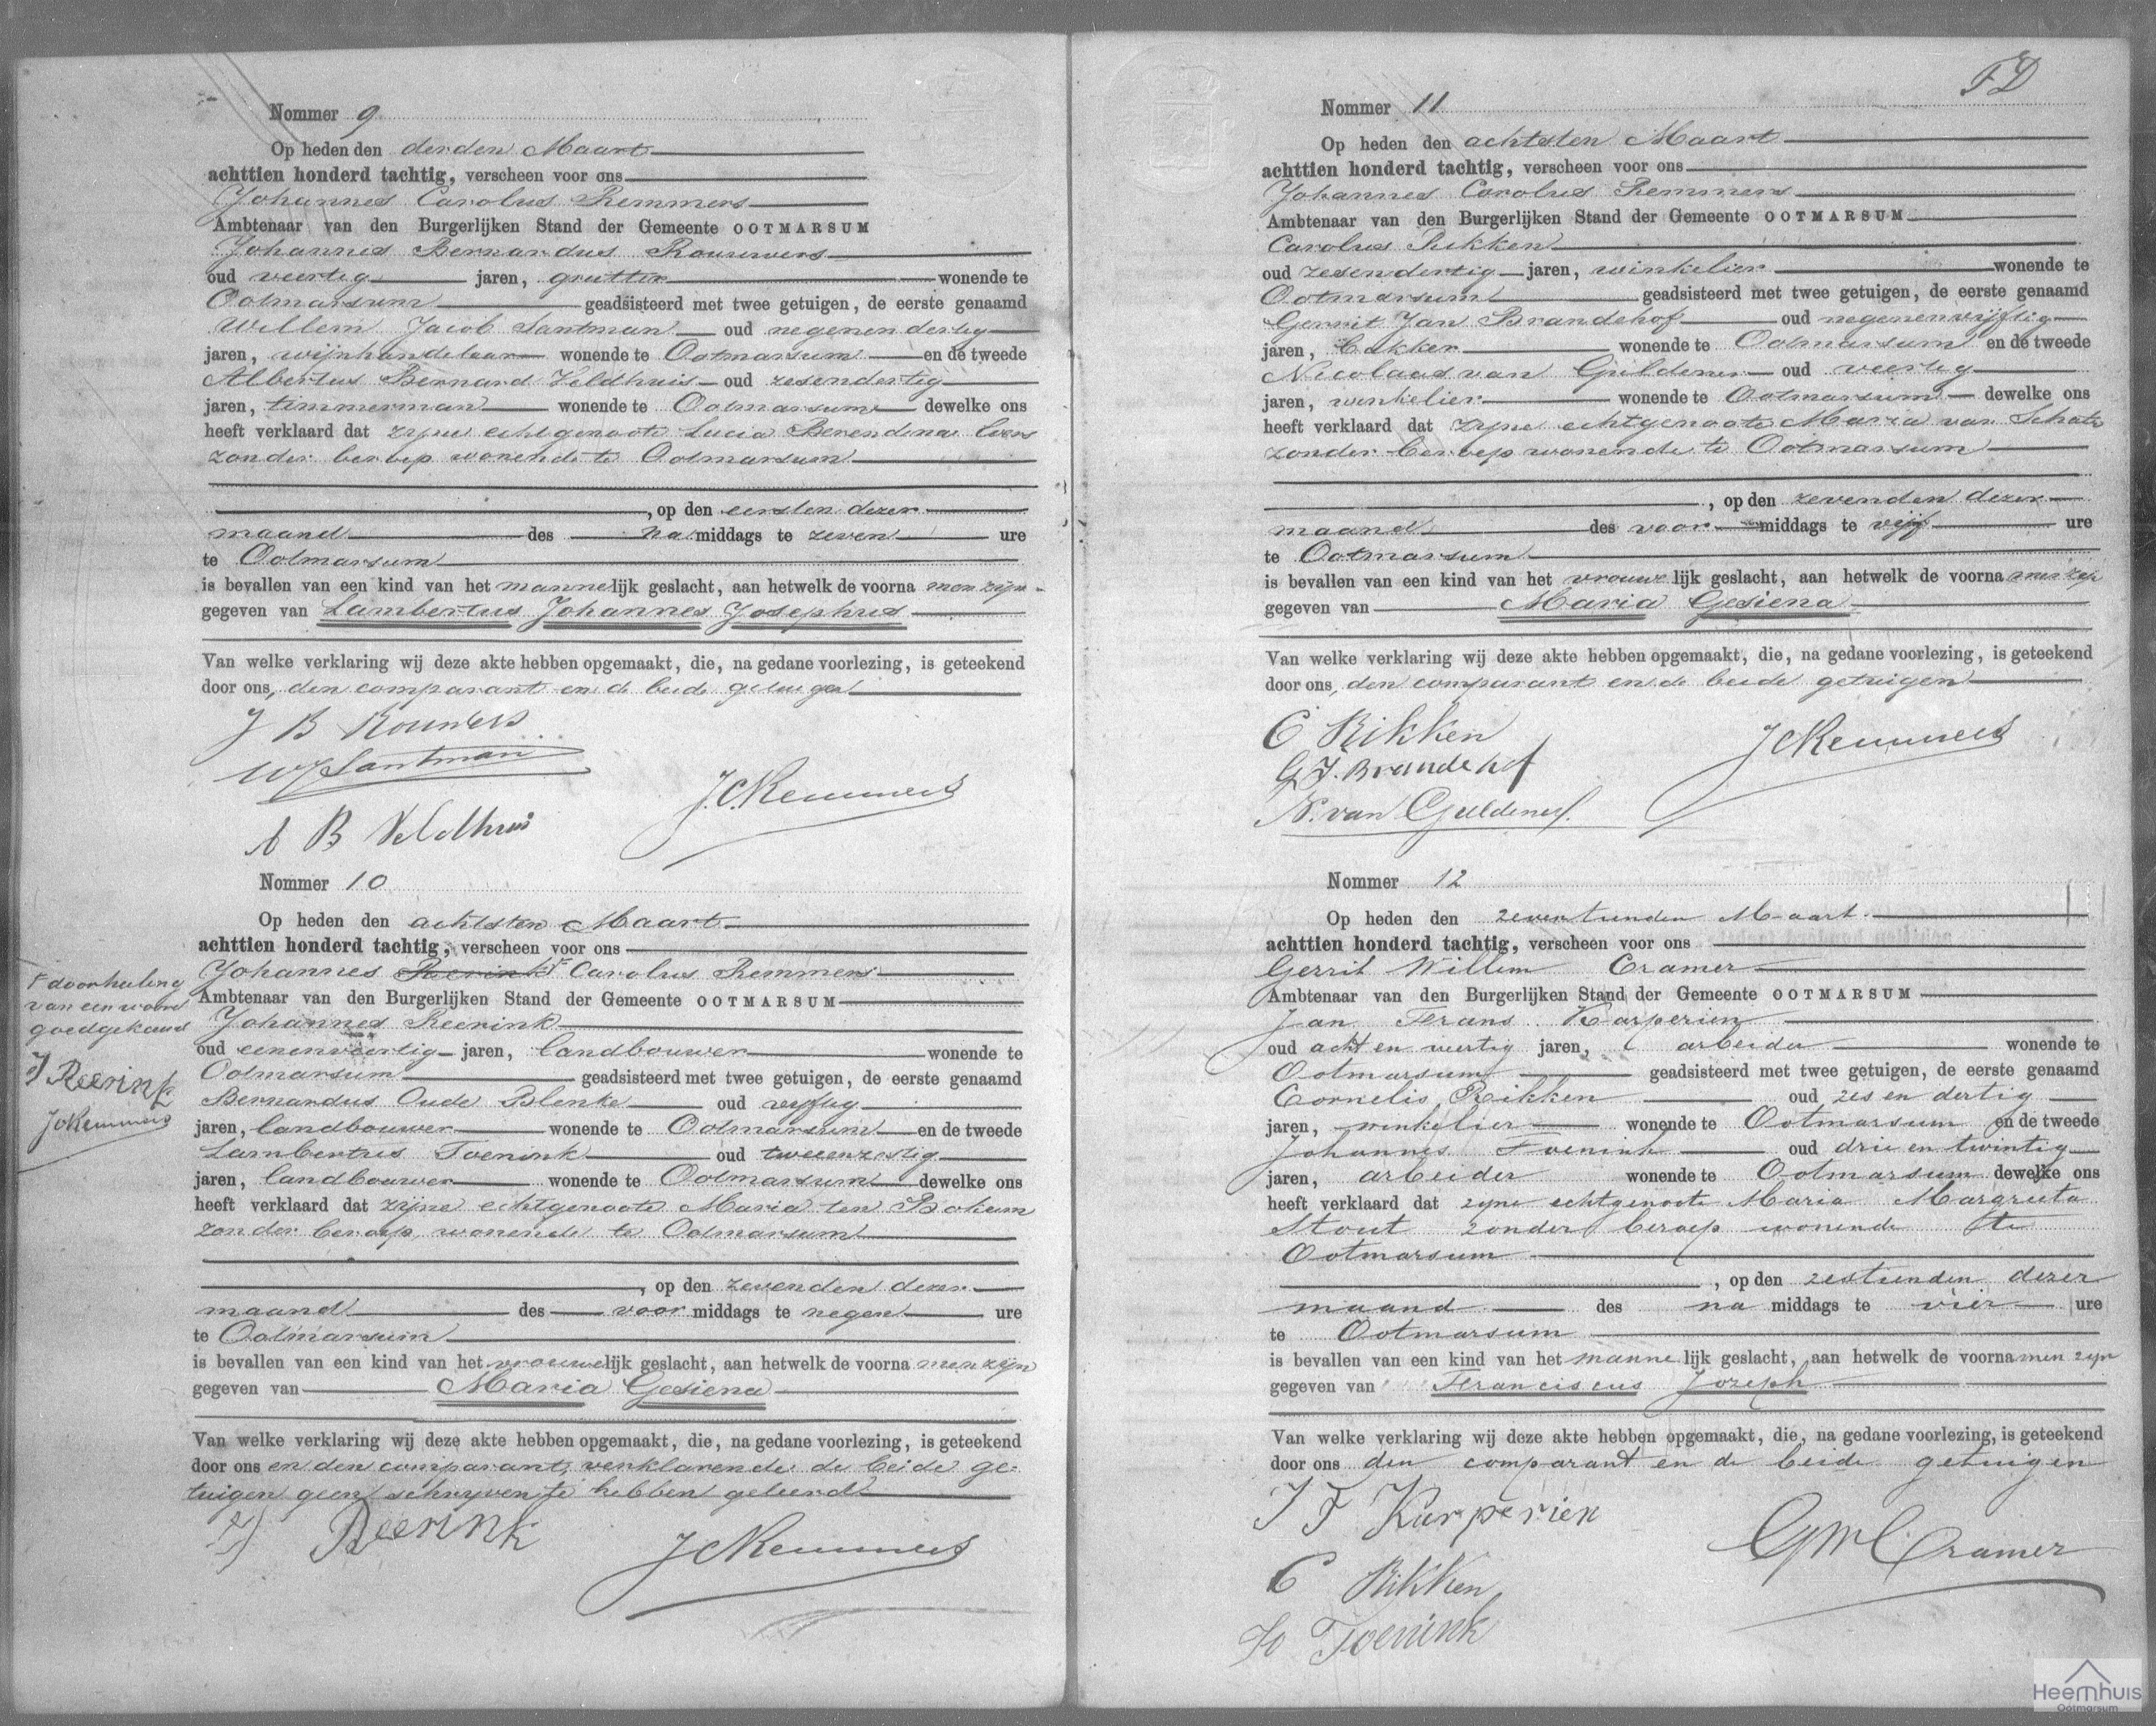 Nommer 9
Op heden den derden Maart
achttien honderd tachtig, verscheen voor ons
Johannes Carolus Remmers
Ambtenaar van den Burgerlijken Stand der Gemeente OOTMARSUM
Johannes Bernardus Rouwers
oud veertig jaren, grutter wonende te
Ootmarsum geadsisteerd met twee getuigen, de eerste genaamd
Willem Jacob Santman oud negenendertig
jaren, wijnhandelaar wonende te Ootmarsum en de tweede
Albertus Bernard Veldhuis oud zesendertig
jaren, timmerman wonende te Ootmarsum dewelke ons
heeft verklaard dat zijne echtgenoote Lucia Berendina
zonder beroep wonende te Ootmarsum
, op den eersten dezer
maand des na middags te zeven ure
te Ootmarsum
is bevallen van een kind van het mannelijk geslacht, aan hetwelk de voornamen zijn
gegeven van Lambertus Johannes Josephus
Van welke verklaring wij deze akte hebben opgemaakt, die, na gedane voorlezing, is geteekend
door ons, den comparant en de beide getuigen
J B Rouwers
WJ Santman
J.C. Remmers
A B Veldhuis
Nommer 10
Op heden den achtsten Maart
achttien honderd tachtig, verscheen voor ons
Johannes Reerink Carolus Remmers
Ambtenaar van den Burgerlijken Stand der Gemeente OOTMARSUM
Johannes Reerink
oud eenenveertig jaren, landbouwer wonende te
Ootmarsum geadsisteerd met twee getuigen, de eerste genaamd
Bernardus Oude Blenke oud vijftig
jaren, landbouwer wonende te Ootmarsum en de tweede
Lambertus Toenink oud tweeenzestig
jaren, landbouwer wonende te Ootmarsum dewelke ons
heeft verklaard dat zijne echtgenoote Maria ten Bokum
zonder beroep wonende te Ootmarsum
, op den zevenden dezer
maand des voor middags te negen ure
te Ootmarsum
is bevallen van een kind van het vrouwelijk geslacht, aan hetwelk de voornamen zijn
gegeven van Maria Gesiena
Van welke verklaring wij deze akte hebben opgemaakt, die, na gedane voorlezing, is geteekend
door ons en den comparant, verklarende de beide ge-
tuigen geen schryven te hebben geleerd
J Reerink
JC Remmers
doorhaling
van een woord
goedgekeurd
J Reerink
JC Remmers
Nommer 11
Op heden den achtsten Maart
achttien honderd tachtig, verscheen voor ons
Johannes Carolus Remmers
Ambtenaar van den Burgerlijken Stand der Gemeente OOTMARSUM
Carolus Rikken
oud zesendertig jaren, winkelier wonende te
Ootmarsum geadsisteerd met twee getuigen, de eerste genaamd
Gerrit Jan Brandehof oud negenenvijftig
jaren, bakker wonende te Ootmarsum en de tweede
Nicolaas van Guldener oud veertig
jaren, winkelier wonende te Ootmarsum dewelke ons
heeft verklaard dat zijne echtgenoote Maria van
zonder beroep wonende te Ootmarsum
, op den zevenden dezer
maand des voor middags te vijf ure
te Ootmarsum
is bevallen van een kind van het vrouwelijk geslacht, aan hetwelk de voornamen zijn
gegeven van Maria Gesiena
Van welke verklaring wij deze akte hebben opgemaakt, die, na gedane voorlezing, is geteekend
door ons, den comparant en de beide getuigen
C Rikken
JC Remmers
G J. Brandehof
N. van Guldener
Nommer 12
Op heden den zeventienden Maart
achttien honderd tachtig, verscheen voor ons
Gerrit Willem Cramer
Ambtenaar van den Burgerlijken Stand der Gemeente OOTMARSUM
Jan Frans Karperien
oud acht en veertig jaren, arbeider wonende te
Ootmarsum geadsisteerd met twee getuigen, de eerste genaamd
Cornelis Rikken oud zes en dertig
jaren, winkelier wonende te Ootmarsum en de tweede
Johannes Toenink oud drie en twintig
jaren, arbeider wonende te Ootmarsum dewelke ons
heeft verklaard dat zyne echtgenoote Maria Margrieta
Stout zonder beroep wonende te
Ootmarsum
, op den zestienden dezer
maand des na middags te vier ure
te Ootmarsum
is bevallen van een kind van het mannelijk geslacht, aan hetwelk de voornamen zyn
gegeven van Franciscus Jozeph
Van welke verklaring wij deze akte hebben opgemaakt, die, na gedane voorlezing, is geteekend
door ons den comparant en de beide getuigen
J F Karperien
GW Cramer
C Rikken
Jo Toenink
Heemhuis
Ootmarsum